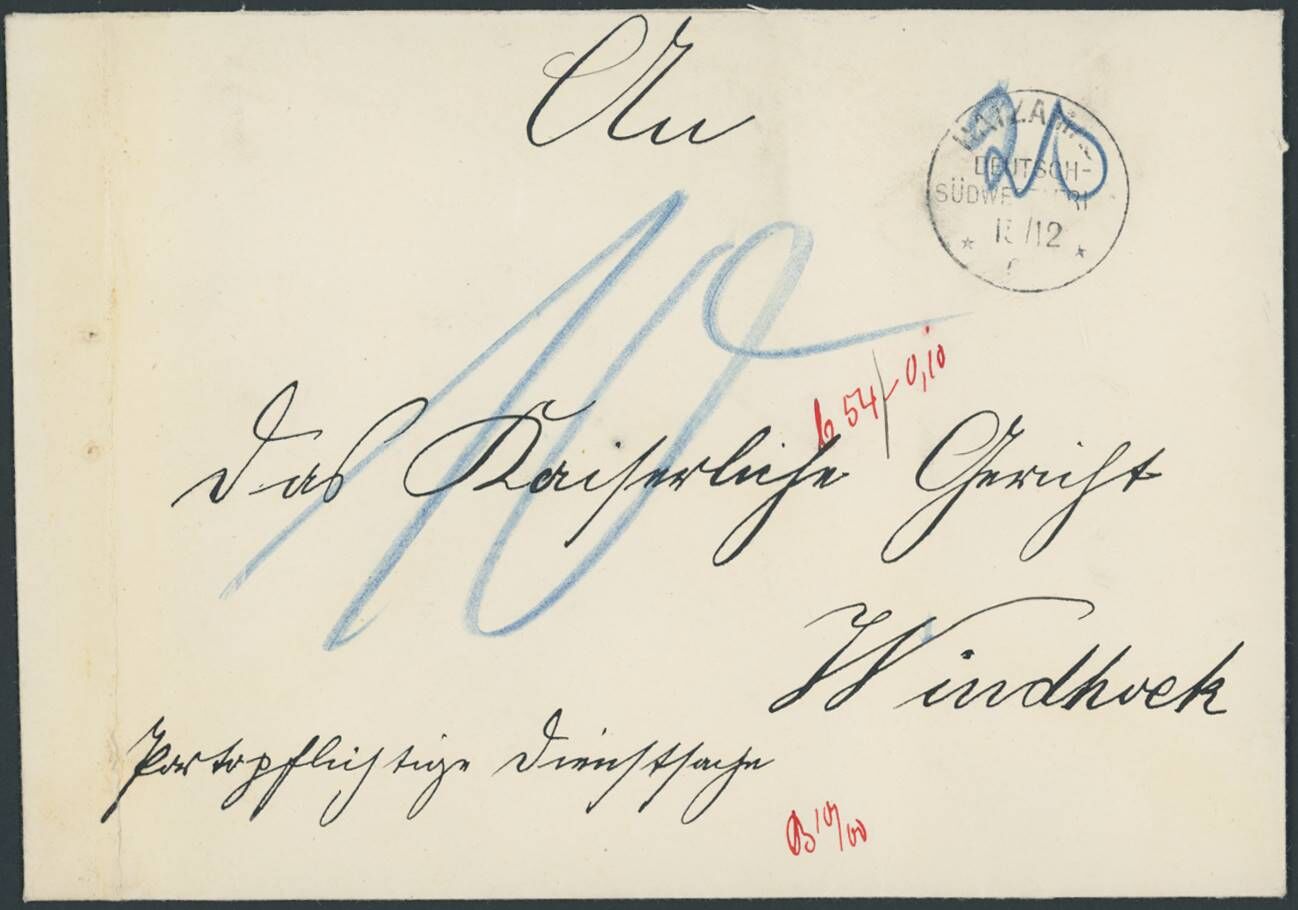 An
DEUTSCH-
13/12
10
0,10
54
das Kaiserliche Gericht
Windhoek
Portopflichtige Dienstsache